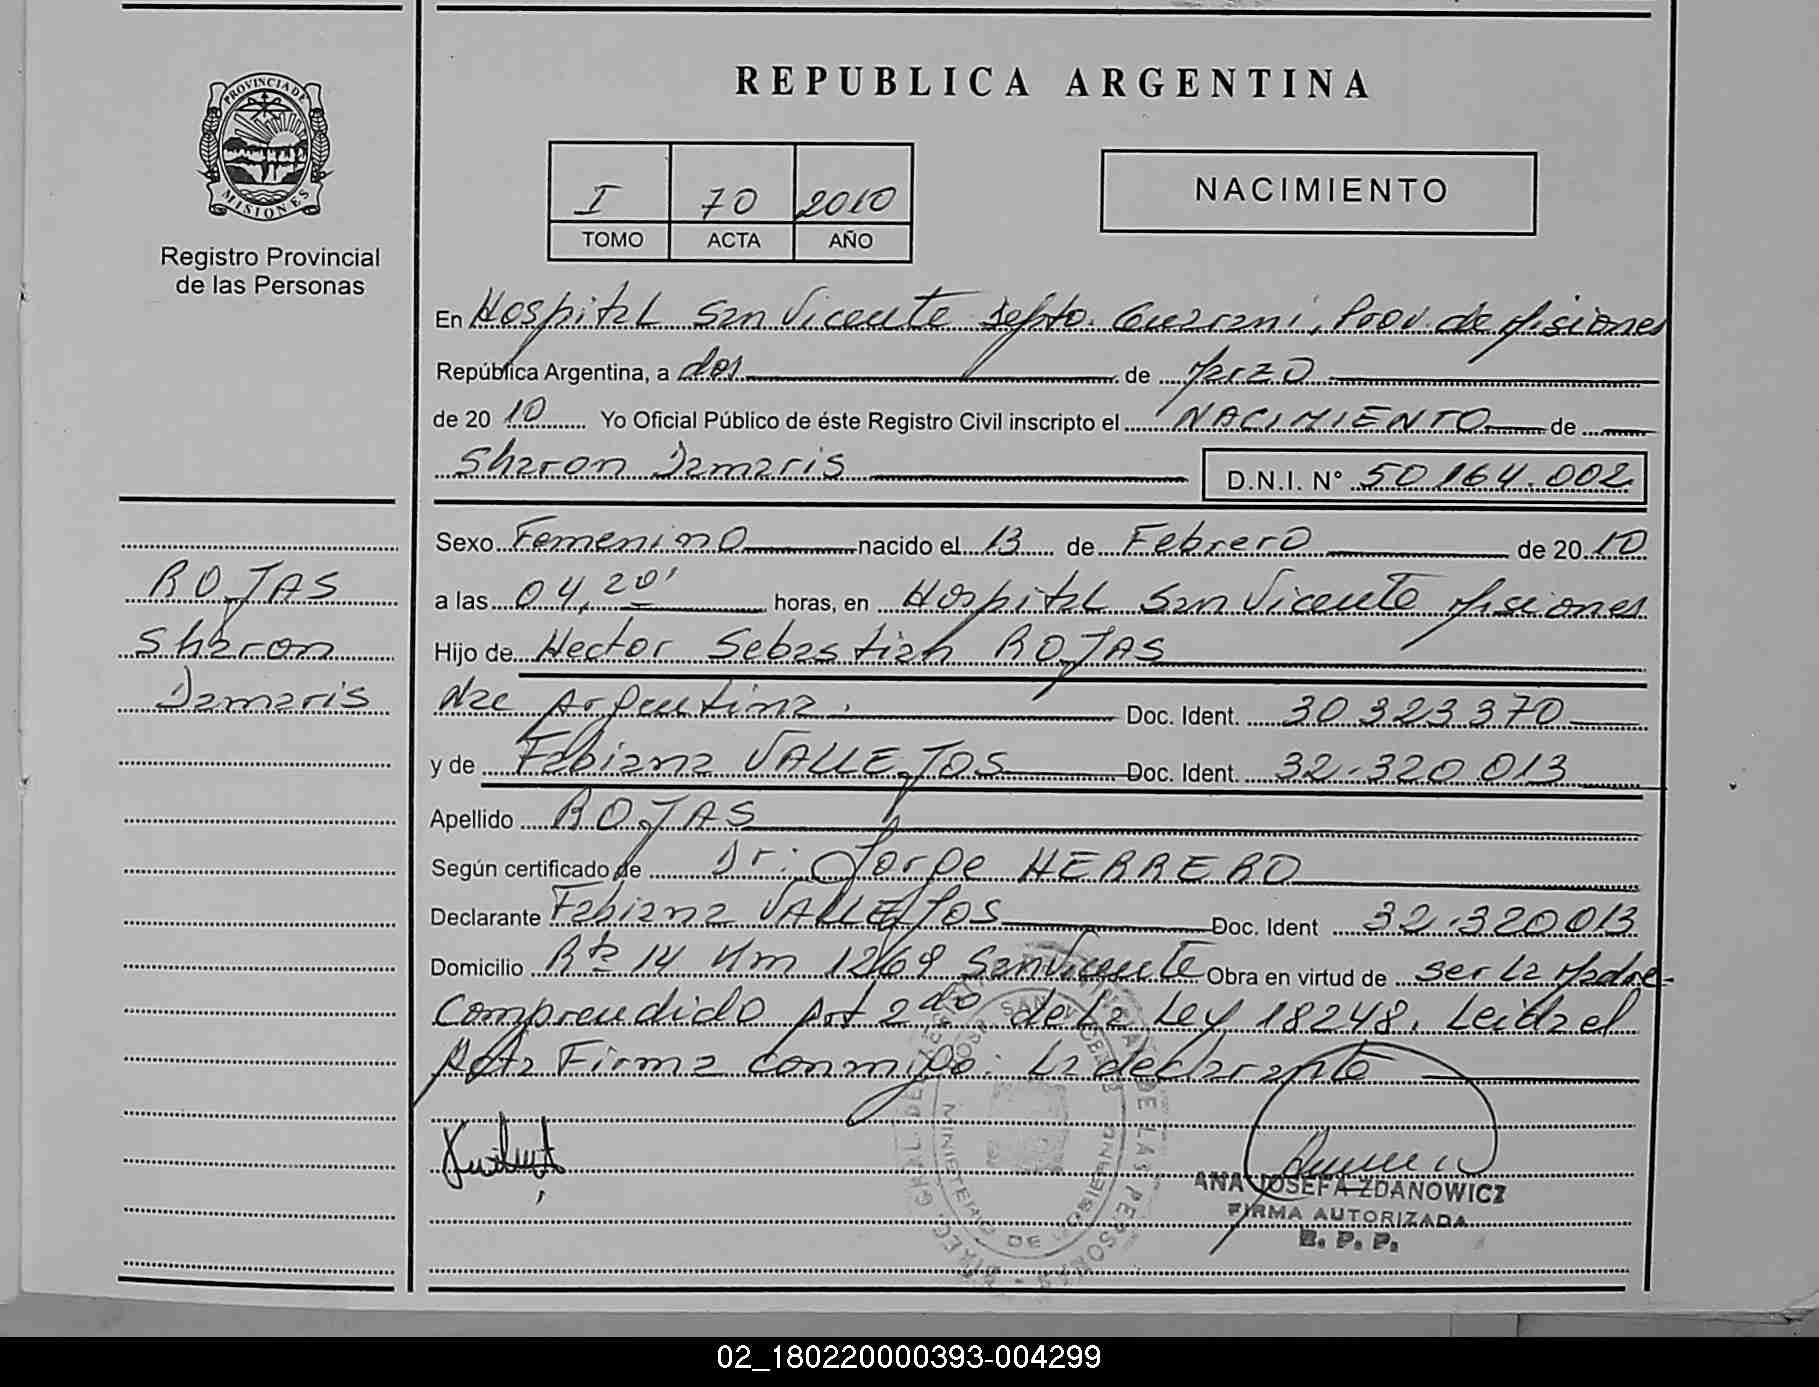 REPUBLICA ARGENTINA
PROVINCIA DE
MISIONES
Registro Provincial
de las Personas
I 70 2010
TOMO ACTA AÑO
NACIMIENTO
En Hospital San Vicente Depto. Guarani, Prov. de Misiones
República Argentina, a dos de Marzo
de 2010 Yo Oficial Público de éste Registro Civil inscripto el NACIMIENTO de
Sharon Damaris D.N.I. N° 50164.002
ROJAS
Sharon
Damaris
Sexo Femenino nacido el 13 de Febrero de 2010
a las 04,20' horas, en Hospital San Vicente Misiones
Hijo de Hector Sebastian ROJAS
Nac Argentina. Doc. Ident. 30323370
y de Fabiana VALLEJOS Doc. Ident. 32.320013
Apellido ROJAS
Según certificado de Dr: Jorge HERRERO
Declarante Fabiana VALLEJOS Doc. Ident 32.320013
Domicilio Rta 14 Km 1269 San Vicente Obra en virtud de ser la Madre-
Comprendido Art 2do de la Ley 18248. Leida el
Acta Firma conmigo: La declarante
MINISTERIO DE GOBIERNO
DE LAS PERSONAS
ANA JOSEFA ZDANOWICZ
FIRMA AUTORIZADA
R. P. P.
02_180220000393-004299